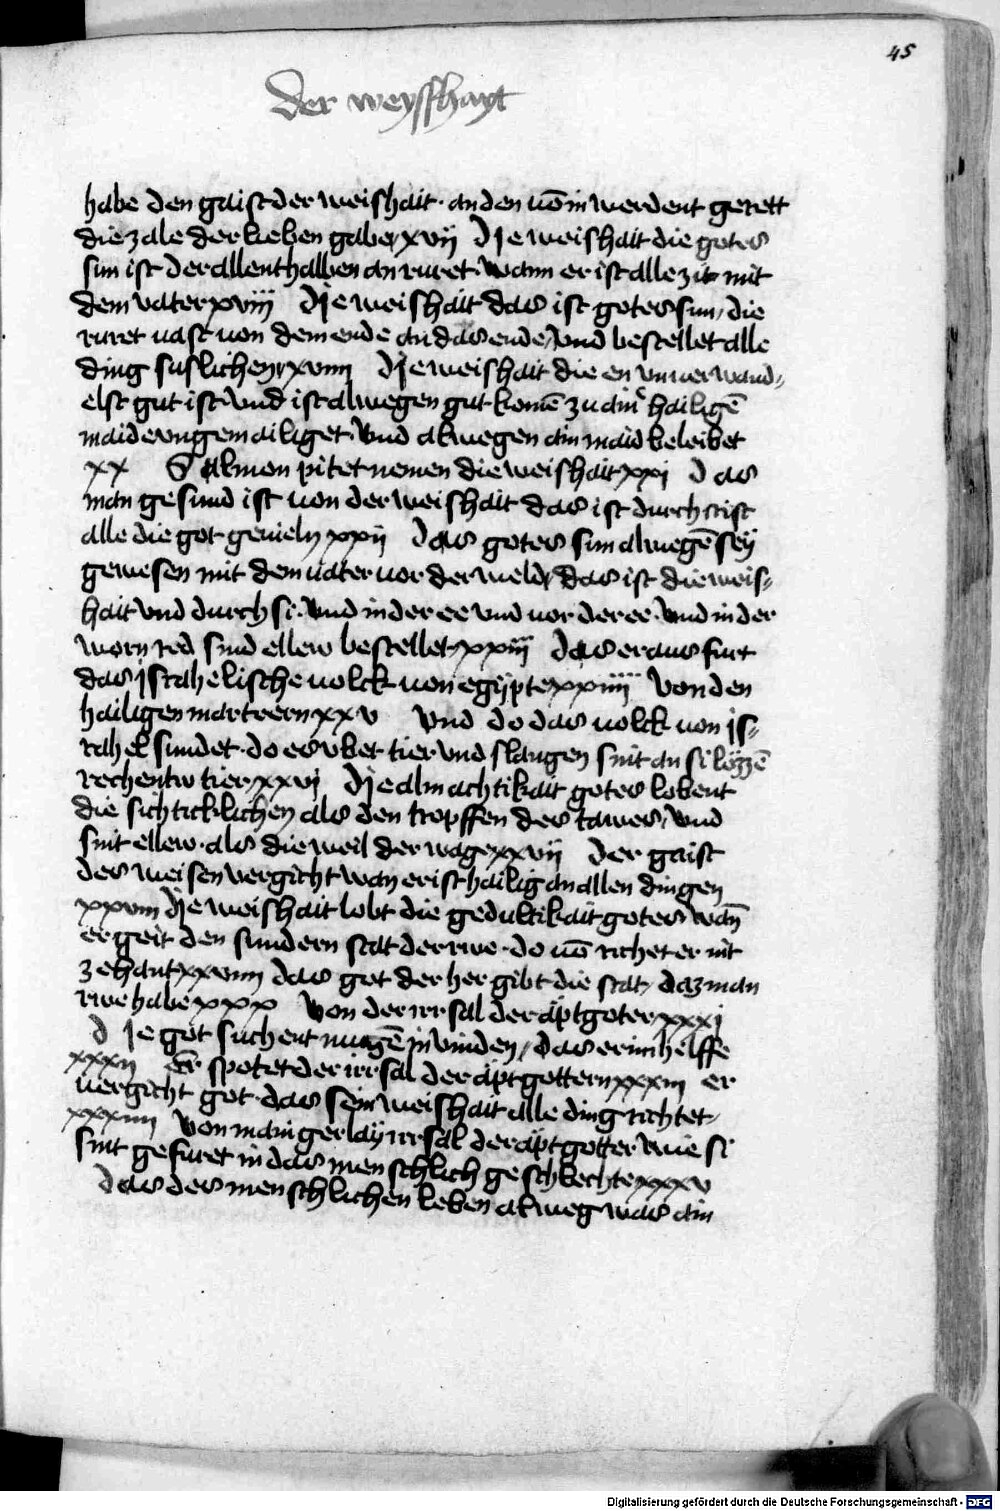 45
Der weyſſhayt
habe den gaist der weishait · an den uō in werdent gerett
die zale der lieben gaben xvij Dje weishait die gotes
sun ist der allenthalben an ruret · wann er ist alle zit mit
dem vater xviij Dje weishait das ist gotes sun / die
ruret uast von dem ende an das ende / vnd bestellet alle
ding suslichen xviiij Dje weishait die en vnuerwand⸗
elst gut ist · vnd ist alwegen gut komē zu ainr hailigē
maide vngemailiget · vnd alwegen ain maid beleibet
xx Salmon pitet nemen die weishait xxj Das
man gesund ist von der weishait das ist durch crist
alle die got geuieln xxij Das gotes sun alwegē sey
gewesen mit dem uater uor der weld / das ist die weis⸗
hait vnd durch si · vnd in der ee vnd uor der ee · vnd in der
worn red sind ellew bestellet xxiij Das er aus furt
das jsrahelische uolck uon egypte xxiiij Von den
hailigen martrern xxv Vnd do das uolck uon js⸗
rahel sundet · do er
rechen tw tier xxvj Dje almachtikait gotes lobent
die sichticklichen als den tropffen des tawes / vnd
sint ellew · als die weil der wage xxvij Der gaist
des weisen vergicht wan er ist hailig an allen dingen
xxviij Dje weishait lobt die gedultikait gotes wañ
er geit den sundern stat der rwe · do uō richet er nit
zehant xxviiij das got der her gibt die stat / daz man
rwe habe xxx Von der irrsal der aptgoter xxxj
Dje got suchent mugē jn vinden / das er im helffe
xxxij Er spotet der irrsal der aptgottern xxxiij er
uergicht got · das sein weishait alle ding richtet /
xxxiiij Von maniger lay irrsal der aptgotter wie si
sint gefuret in das menschlich geschlechte xxxv
Das des menschlichen leben alweg was ain
Digitalisierung gefördert durch die Deutsche Forschungsgemeinschaft - DFG